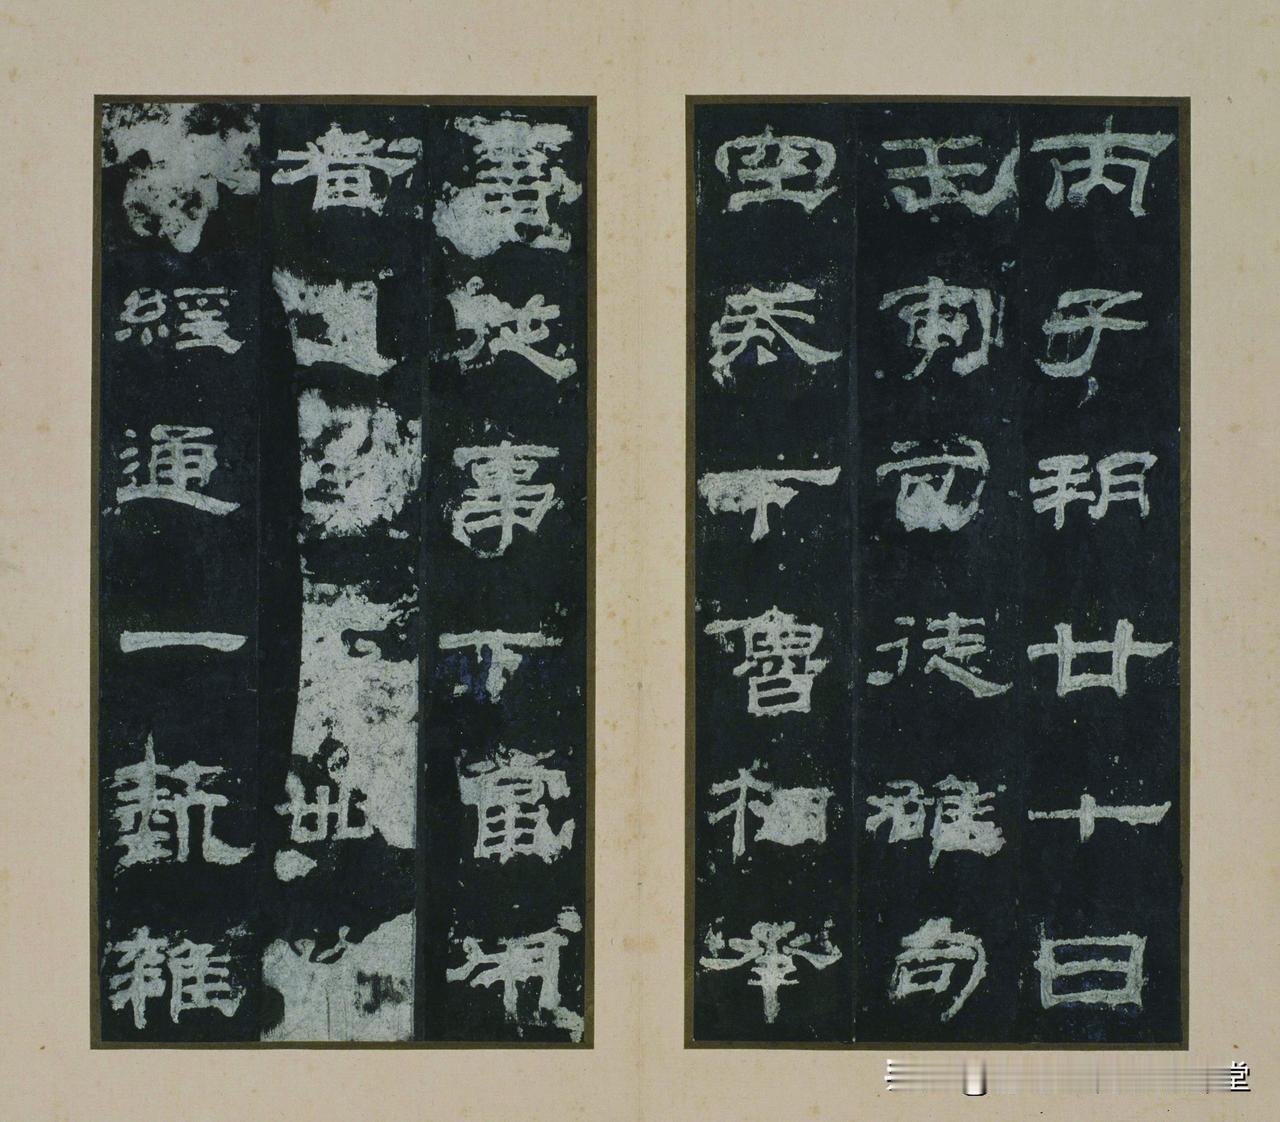 丙子朔廿七日
壬寅司徒雄司
空戒下魯相承
書從事下當用
者卌
經通一藝雜
堂